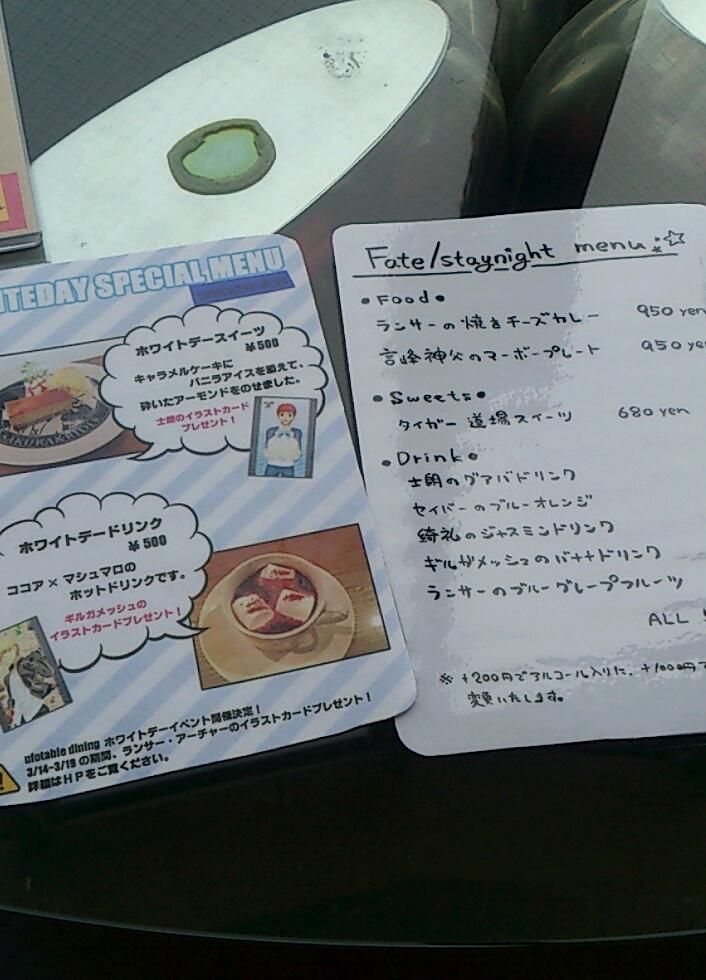 ITEDAY SPECIAL MENU
ホワイトデースイーツ
¥500
キャラメルケーキに
バニラアイスを添えて、
砕いたアーモンドをのせました。
士郎のイラストカード
プレゼント!
ホワイトデードリンク
¥500
ココア×マシュマロの
ホットドリンクです。
ギルガメッシュの
イラストカードプレゼント!
ufotable dining ホワイトデーイベント開催決定!
3/14-3/19の期間、ランサー・アーチャーのイラストカードプレゼント!
詳細はHPをご覧ください。
Fate/staynight menu
•Food•
ランサーの焼きチーズカレー 950 yen
言峰神父のマーボープレート 950 ye
•Sweets•
タイガー道場スイーツ 680 yen
•Drink•
士朗のグアバドリンク
セイバーのブルーオレンジ
綺礼のジャスミンドリンク
ギルガメッシュのバナナドリンク
ランサーのブルーグレープフルーツ
ALL
※+200円でアルコール入りに、+100円で
変更いたします。